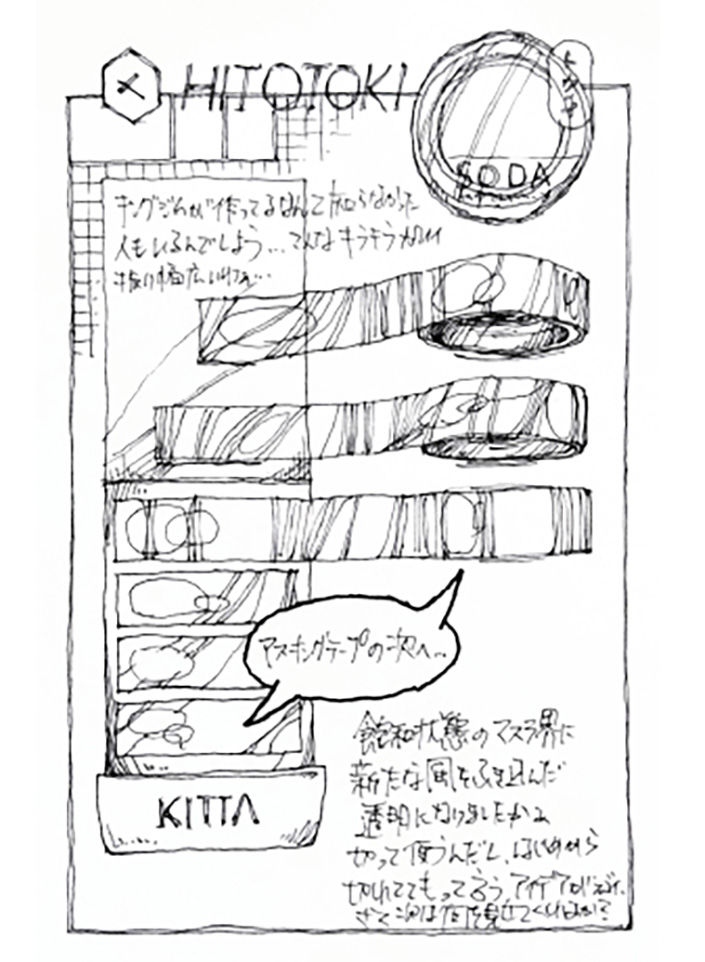 HITOTOKI
SODA
キングジムが作ってるなんて知らなかった
人もいるんでしょう…こんなキラキラ
振り幅広い
マスキングテープの次へ…
飽和状態のマステ界に
新たな風をふき込んだ
透明になりましたかぁ
切って使うんだし、はじめから
切れててもって言う アイデアが
さて次は何を見せてくれるか?
KITTA